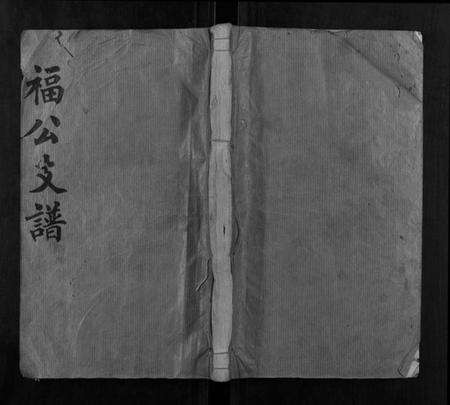 福公支譜